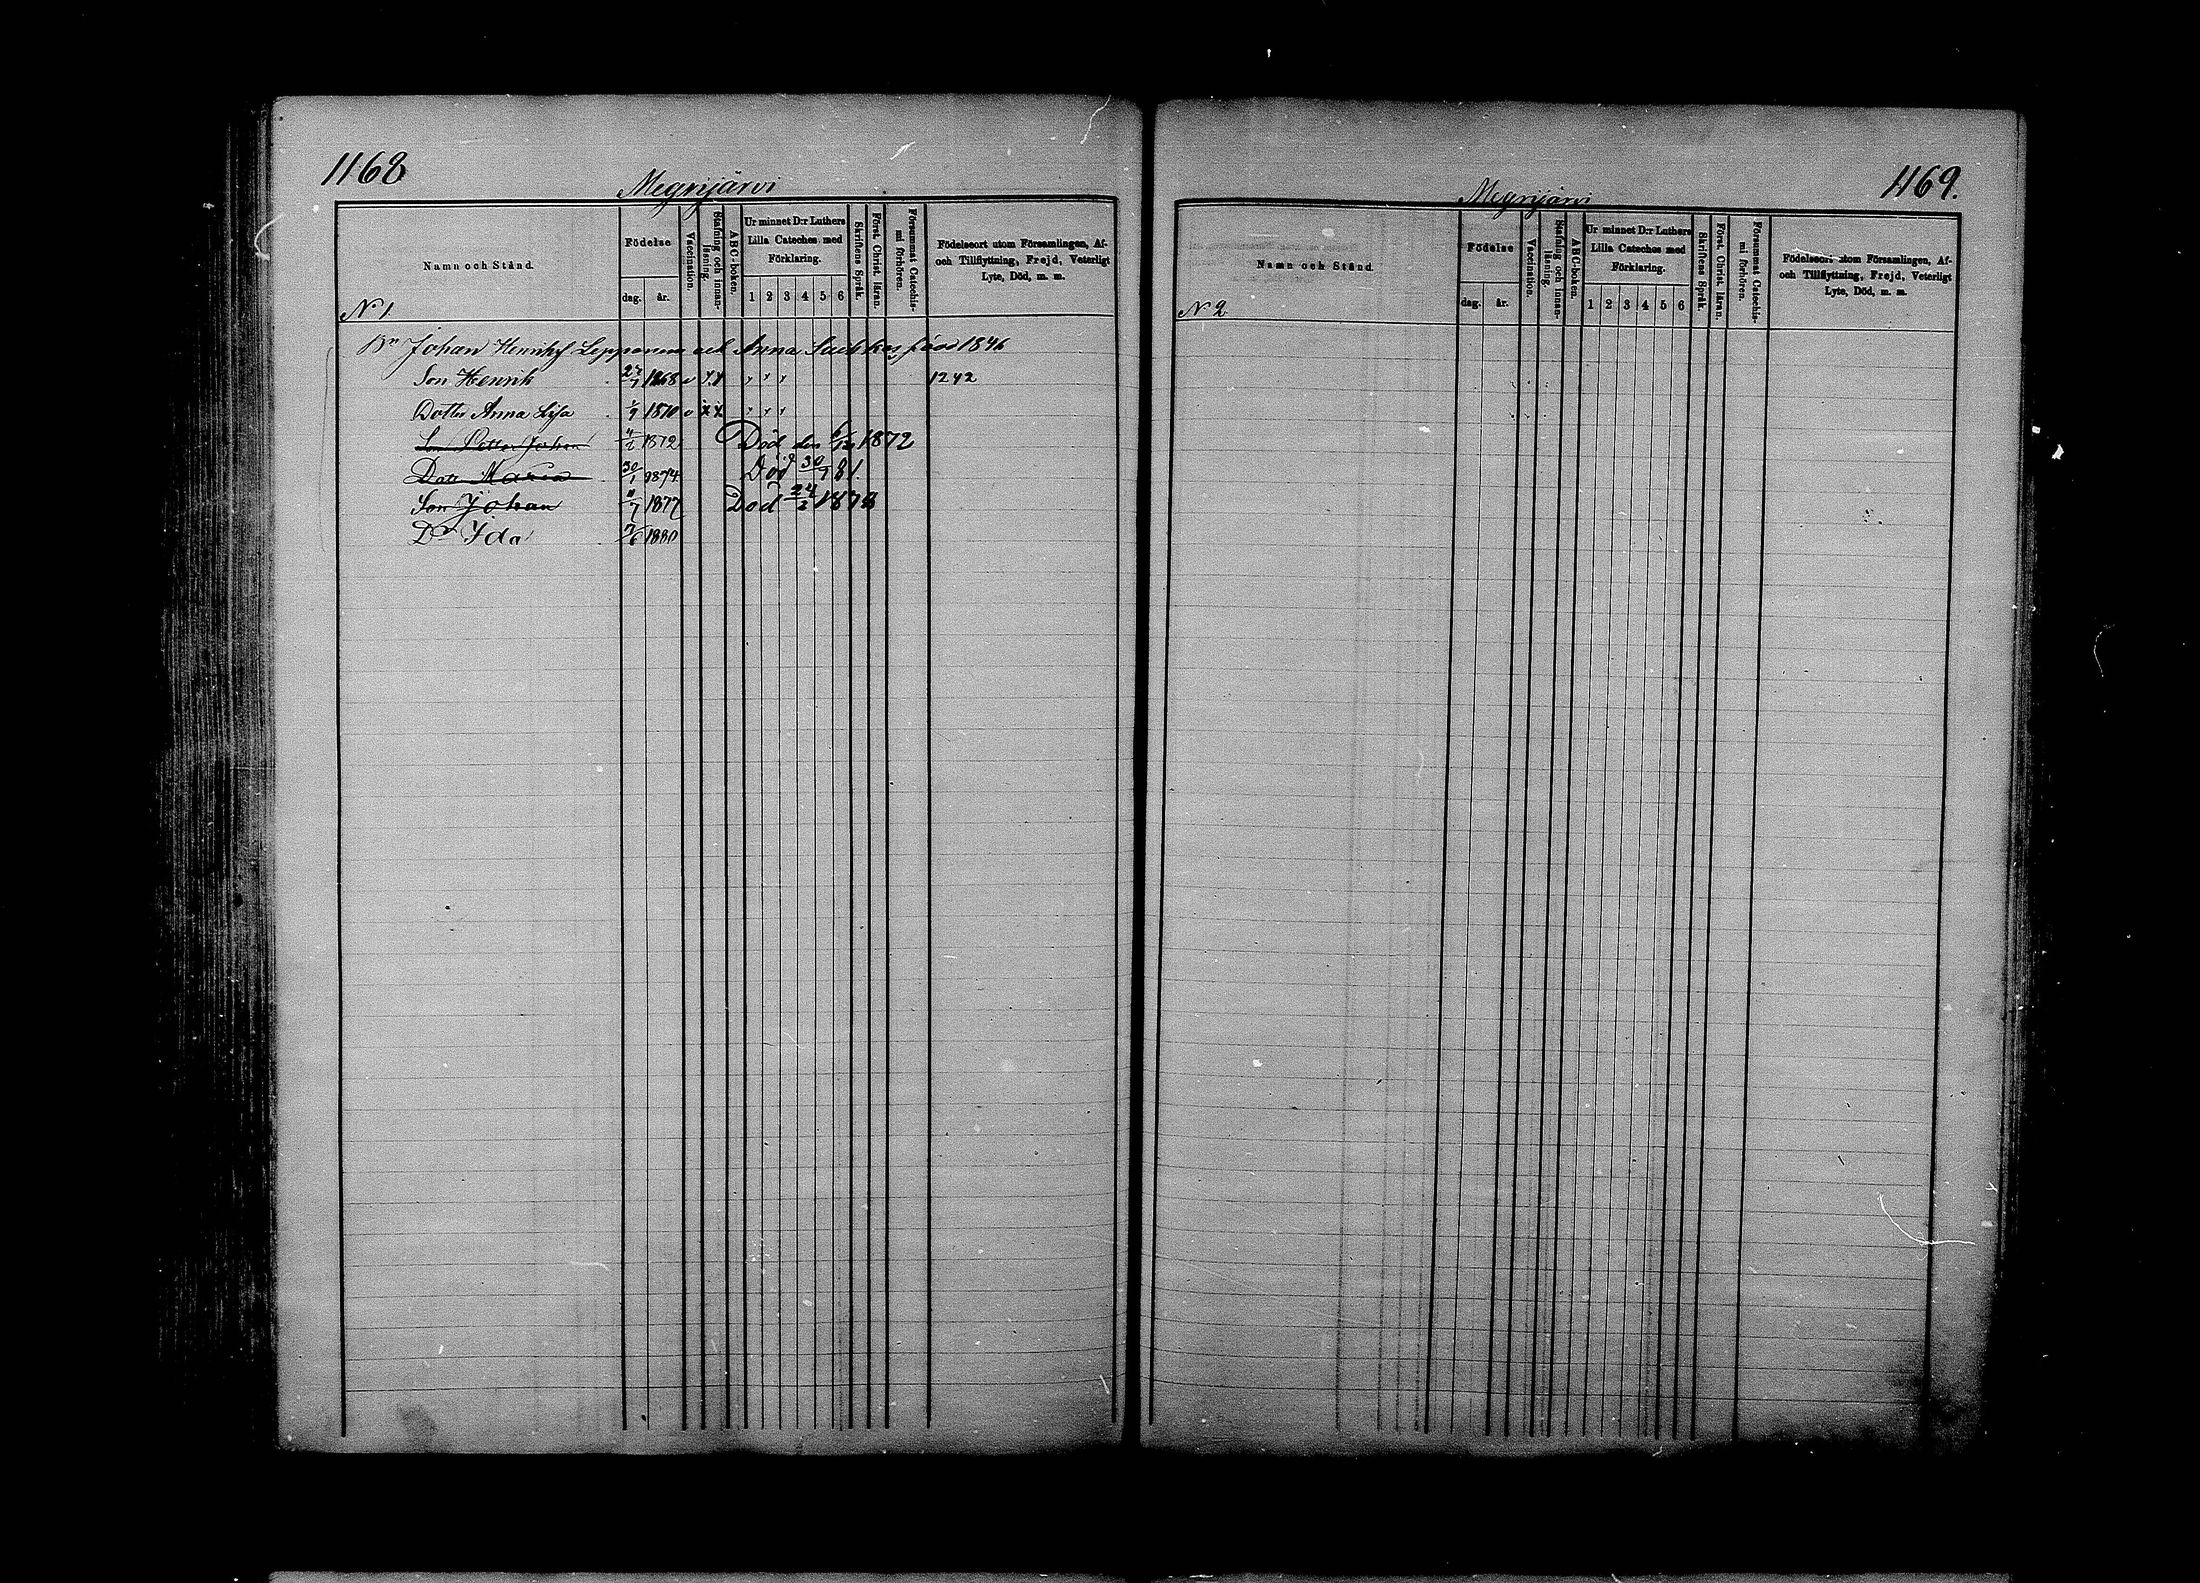 1168
Megrijärvi
Namn och Stånd
Födelse
dag. år.
Vaccination.
Stafning och innan-läsning.
ABC-boken.
Ur minnet D:r Luthers
Lilla Cateches med
Förklaring.
1 2 3 4 5 6
Skriftens Språk.
Först. Christ. läran.
Försummat Catechis-mi förhören.
Födelseort utom Församlingen, Af-
och Tillflyttning, Frejd, Veterligt
Lyte, Död, m. m.
N. 1
Johan Henriks Lepponen och Anna barn 1846
Son Henrik 1868 v x x 1242
Dotter Anna Lisa 1/9 1870 v x x
Son Petter Johan 1872 Död den 1872
Dott. Maria 30/1 1874 Död 30/1 81.
Son Johan 11/7 1877 Död 24/2 1878
Dr Ida 7/6 1880
1169.
Megrijärvi
Namn och Stånd
Födelse
dag. år.
Vaccination.
Stafning och innan-läsning.
ABC-boken.
Ur minnet D:r Luthers
Lilla Cateches med
Förklaring.
1 2 3 4 5 6
Skriftens Språk.
Först. Christ. läran.
Försummat Catechis-mi förhören.
Födelseort utom Församlingen, Af-
och Tillflyttning, Frejd, Veterligt
Lyte, Död, m. m.
N 2